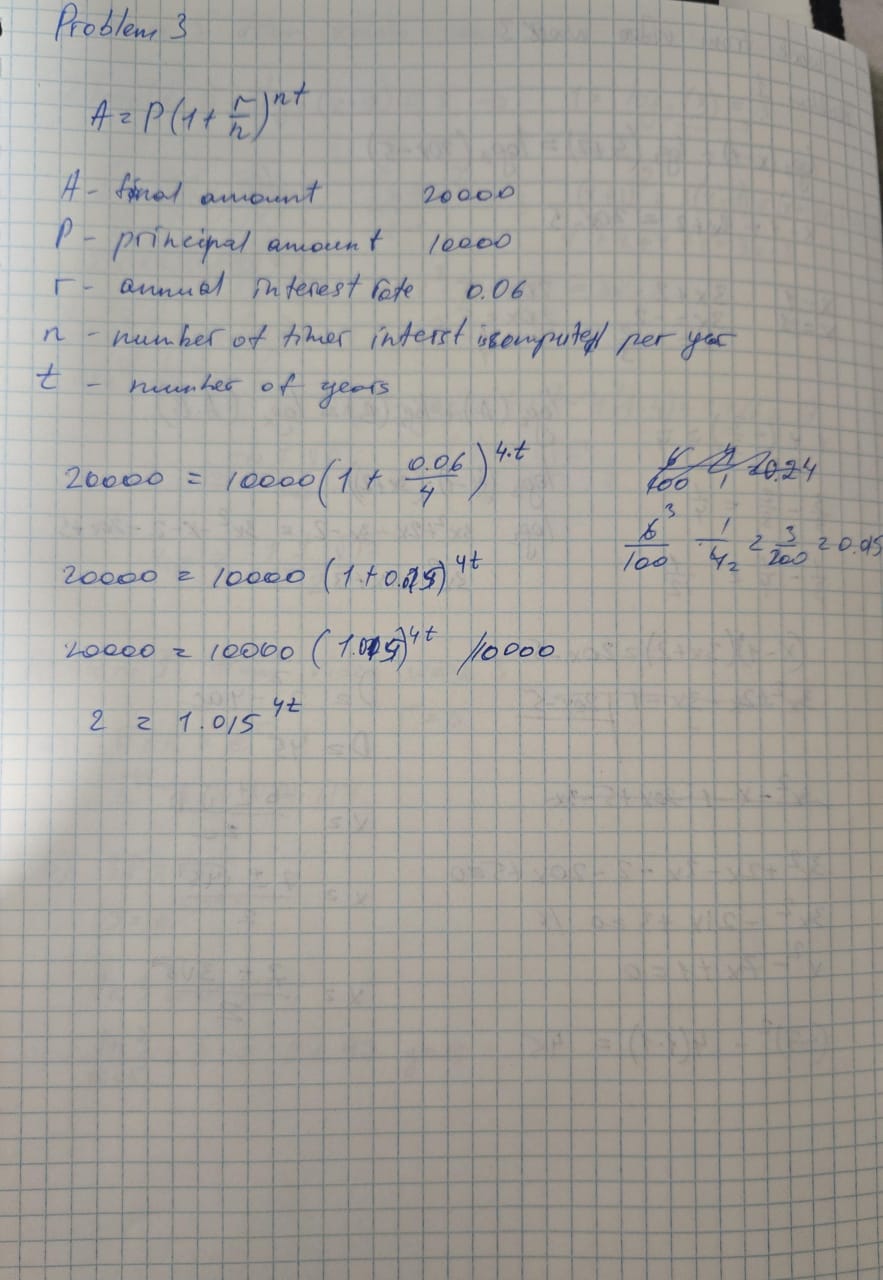 Problem 3
A = P(1 + r/n)^nt
A - final amount 20000
P - principal amount 10000
r - annual interest rate 0.06
n - number of times interst is computed per year
t - number of years
20000 = 10000(1 + 0.06/4)^4·t
6/100 4/1 = 0.24
6/100 3 · 1/4 2 = 3/200 = 0.015
20000 = 10000 (1 + 0.015)^4t
20000 = 10000 (1.015)^4t /10000
2 = 1.015^4t